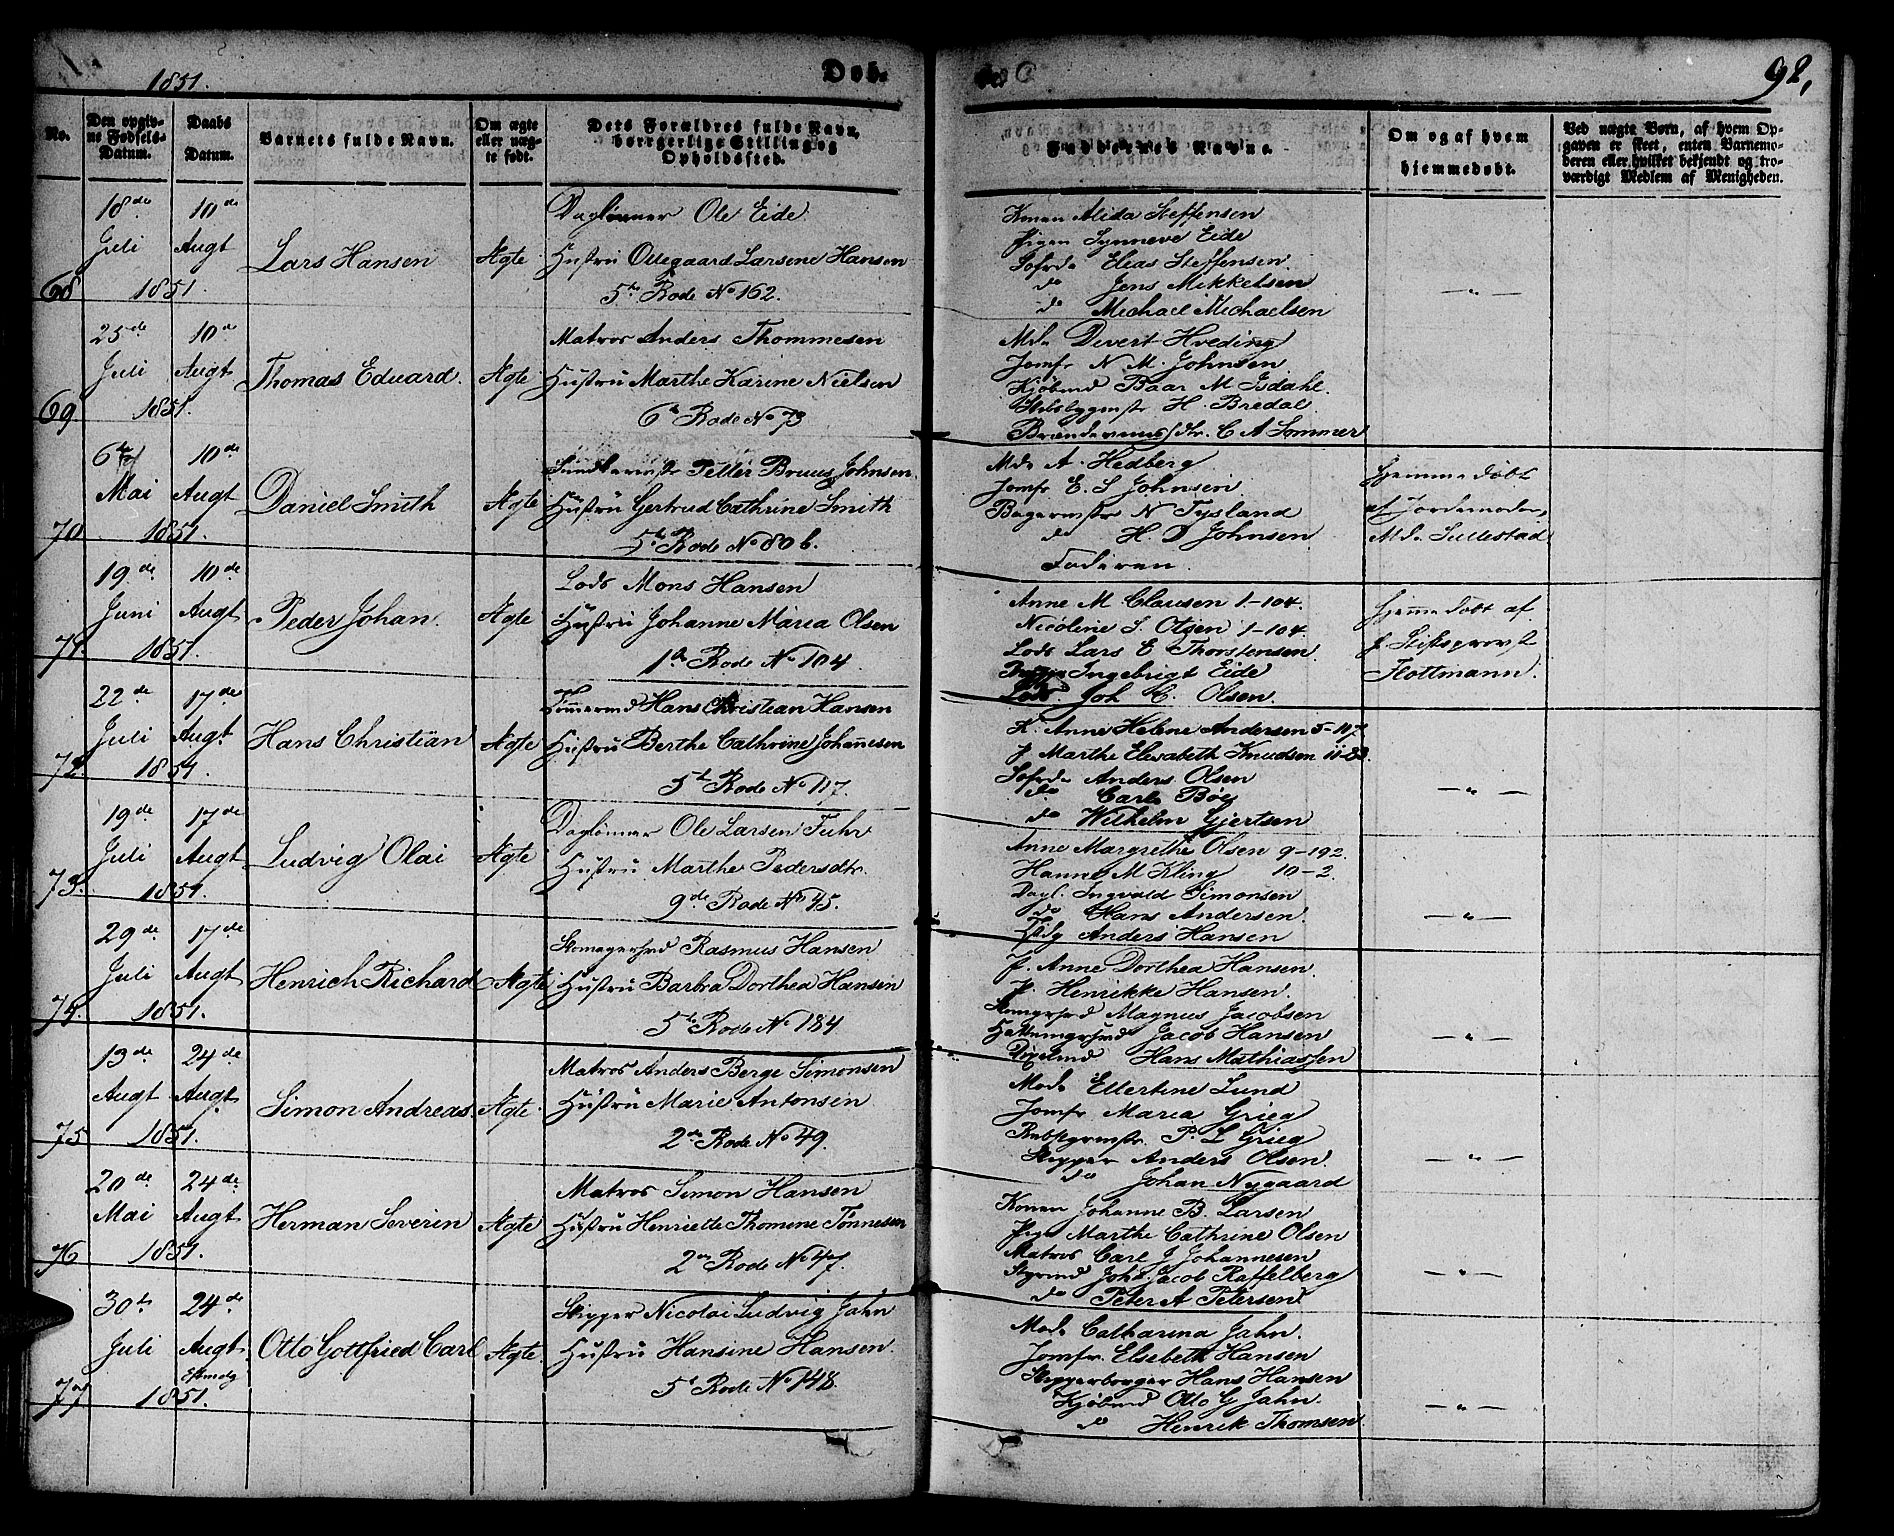 1851.
Døb-
92,
No.
Den opgiv-
ne Fødsels-
Datum.
Daabs
Datum.
Barnets fulde Navn.
Om ægte
eller uæg-
te født.
Dets Forældres fulde Navn,
borgerlige Stilling og
Opholdssted.
Faddernes Navne.
Om og af hvem
hjemmedøbt.
Ved uægte Børn, af hvem Op-
gaven er skeet, enten Barnemo-
deren eller hvilket bekjendt og tro-
værdigt Medlem af Menigheden.
68
18de Juli 1851.
10de Augt
Lars Hansen
Ægte
Daglønner Ole Eide
Hustru Ollegaard Larsene Hansen
5te Rode No 162.
Konen Alida Steffensen
Pigen Synneve Eide
Sofrde Elias Steffensen
do Jens Mikkelsen
do Michael Michaelsen
— " —
69
25de Juli 1851.
10de Augt
Thomas Eduard.
Ægte
Matros Anders Thommesen
Hustru Marthe Karine Nielsen
6te Rode No 73
Mde Devert Hveding
Jomfr N. M. Johnsen
Kjøbmd Baar M. Isdahl
Skibsbygmstr H. Bredal
C A Sommer
70
6te Mai 1851.
10de Augt
Daniel Smith
Ægte
Petter Bruus Johnsen
Hustru Gertrud Cathrine Smith
5te Rode No 80 b.
Mde A. Hedberg
Jomfr E. S Johnsen
Bagermstr N Tysland
do H. D Johnsen
Faderen.
Hjemmedøbt
af Jordemoder,
Mde Sullestad
71
19de Juni 1851.
10de Augt
Peder Johan.
Ægte
Lods Mons Hansen
Hustru Johanne Maria Olsen
1te Rode No 104
Anne M. Clausen 1-104.
Nicoline S. Olsen 1-104.
Lods Lars E Thorstensen
Ingebrigt Eide
Lods Joh C. Olsen.
Hjemmedøbt af
Hr Stiftsprovst
Flottmann.
72
22de Juli 1851.
17de Augt
Hans Christian
Ægte
Tømmermd Hans Christian Hansen
Hustru Berthe Cathrine Johannesen
5te Rode No 117.
K. Anne Helene Andersen 5-117.
P Marthe Elisabeth Knudsen 11-83.
Sofrde Anders Olsen
do Carl Bøe
do Wilhelm Gjertsen
— " —
73.
19de Juli 1851.
17de Augt
Ludvig Olai
Ægte
Daglønner Ole Larsen Fuhr
Hustru Marthe Pedersdtr.
9de Rode No 45.
Anne Margrethe Olsen 9-192.
Hanne M Kling 10-2.
Dagl. Ingvald Simonsen
do Hans Andersen.
Anders Hansen
— " —
74.
29de Juli 1851.
17de Augt
Henrich Richard
Ægte
Skomagersvd Rasmus Hansen
Hustru Barbra Dorthea Hansen
5te Rode No 184
J. Anne Dorthea Hansen.
P. Henrikke Hansen.
Magnus Jacobsen
Jacob Hansen
Hans Mathiassen
— " —
75
13de Augt 1851.
24de Augt
Simon Andreas.
Ægte.
Matros Anders Berge Simonsen
Hustru Marie Antonsen
2de Rode No 49.
Mode Ellertine Lund
Jomfr Maria Grieg
Rebslgrmstr. P. L Grieg
Skipper Anders Olsen.
do Johan Nygaard
— " —
76
20de Mai 1851.
24de Augt
Herman Severin
Ægte
Matros Simon Hansen
Hustru Henriette Thomine Tønnesen
2de Rode No 47.
Konen Johanne B. Larsen
Pige Marthe Cathrine Olsen
Matros Carl J Johannesen
Styrmd Johs Jacob Raffelberg
do Peter A Petersen.
— " —
77
30te Juli 1851.
24de Augt.
Otto Gottfried Carl
Ægte.
Skipper Nicolai Ludvig Jahn
Hustru Hansine Hansen.
5te Rode No 148.
Mode Catharina Jahn.
Jomfr. Elsebeth Hansen
Skipperborger Hans Hansen
Kjøbmd Otto G Jahn.
do Henrik Thomsen
— " —